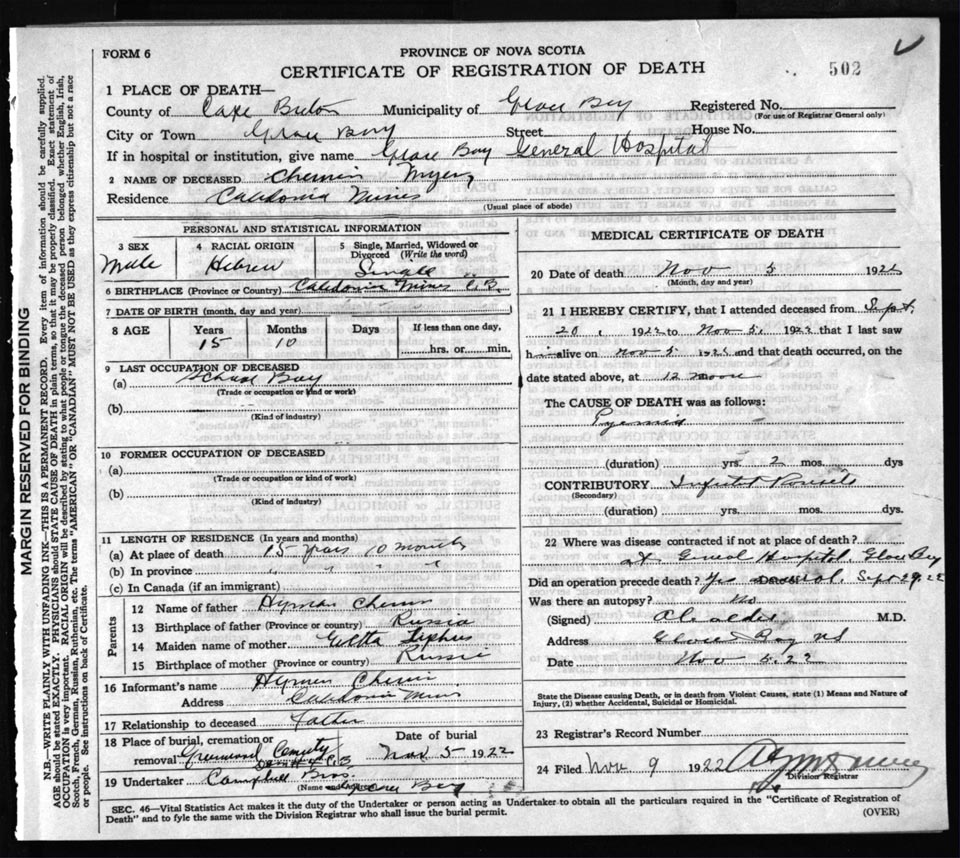 FORM 6
PROVINCE OF NOVA SCOTIA
CERTIFICATE OF REGISTRATION OF DEATH
502
1 PLACE OF DEATH—
County of Cape Breton Municipality of Glace Bay Registered No.
(For use of Registrar General only)
City or Town Glace Bay Street House No.
If in hospital or institution, give name Glace Bay General Hospital
2 NAME OF DECEASED Chernin Myer
Residence Caledonia Mines
(Usual place of abode)
PERSONAL AND STATISTICAL INFORMATION
3 SEX 4 RACIAL ORIGIN 5 Single, Married, Widowed or Divorced (Write the word)
Male Hebrew Single
6 BIRTHPLACE (Province or Country) Caledonia Mines C.B.
7 DATE OF BIRTH (month, day and year)
8 AGE Years Months Days If less than one day,
15 10 hrs. or min.
9 LAST OCCUPATION OF DECEASED
(a) School Boy
(Trade or occupation or kind of work)
(b)
(Kind of industry)
10 FORMER OCCUPATION OF DECEASED
(a)
(Trade or occupation or kind of work)
(b)
(Kind of industry)
11 LENGTH OF RESIDENCE (In years and months)
(a) At place of death 15 years 10 months
(b) In province " " " "
(c) In Canada (if an immigrant)
Parents
12 Name of father Hyman Chernin
13 Birthplace of father (Province or country) Russia
14 Maiden name of mother
15 Birthplace of mother (Province or country) Russia
16 Informant's name Hyman Chernin
Address Caledonia Mines
17 Relationship to deceased Father
18 Place of burial, cremation or removal Greenwood Cemetery C.B.
Date of burial Nov 5 1922
19 Undertaker Campbell Bros.
(Name and address) Glace Bay
MEDICAL CERTIFICATE OF DEATH
20 Date of death Nov 5 1922
(Month, day and year)
21 I HEREBY CERTIFY, that I attended deceased from Sept
20, 1922 to Nov 5, 1922 that I last saw
him alive on Nov 5 1922 and that death occurred, on
date stated above, at 12 noon
The CAUSE OF DEATH was as follows:
Pyemia
(duration) yrs. 2 mos. dys
CONTRIBUTORY Infected
(Secondary)
(duration) yrs. mos. dys.
22 Where was disease contracted if not at place of death?
at General Hospital, Glace Bay
Did an operation precede death? Yes Date of Sept 29, 22
Was there an autopsy? no
(Signed) M.D.
Address Glace Bay NS
Date Nov 5. 22
State the Disease causing Death, or in death from Violent Causes, state (1) Means and Nature of
Injury, (2) whether Accidental, Suicidal or Homicidal.
23 Registrar's Record Number
24 Filed Nov 9 1922
Division Registrar
SEC. 46—Vital Statistics Act makes it the duty of the Undertaker or person acting as Undertaker to obtain all the particulars required in the "Certificate of Registration of
Death" and to fyle the same with the Division Registrar who shall issue the burial permit.
(OVER)
MARGIN RESERVED FOR BINDING
N.B.—WRITE PLAINLY WITH UNFADING INK—THIS IS A PERMANENT RECORD. Every item of information should be carefully supplied.
AGE should be stated EXACTLY. PHYSICIANS should STATE CAUSE OF DEATH in plain terms, so that it may be properly classified. Exact statement of
OCCUPATION is very important. RACIAL ORIGIN will be described by stating to what people or tongue the deceased person belonged, whether English, Irish,
Scotch, French, German, Russian, Ruthenian, etc. The terms "AMERICAN" or "CANADIAN" MUST NOT BE USED as they express citizenship but not a race
or people. See instructions on back of Certificate.